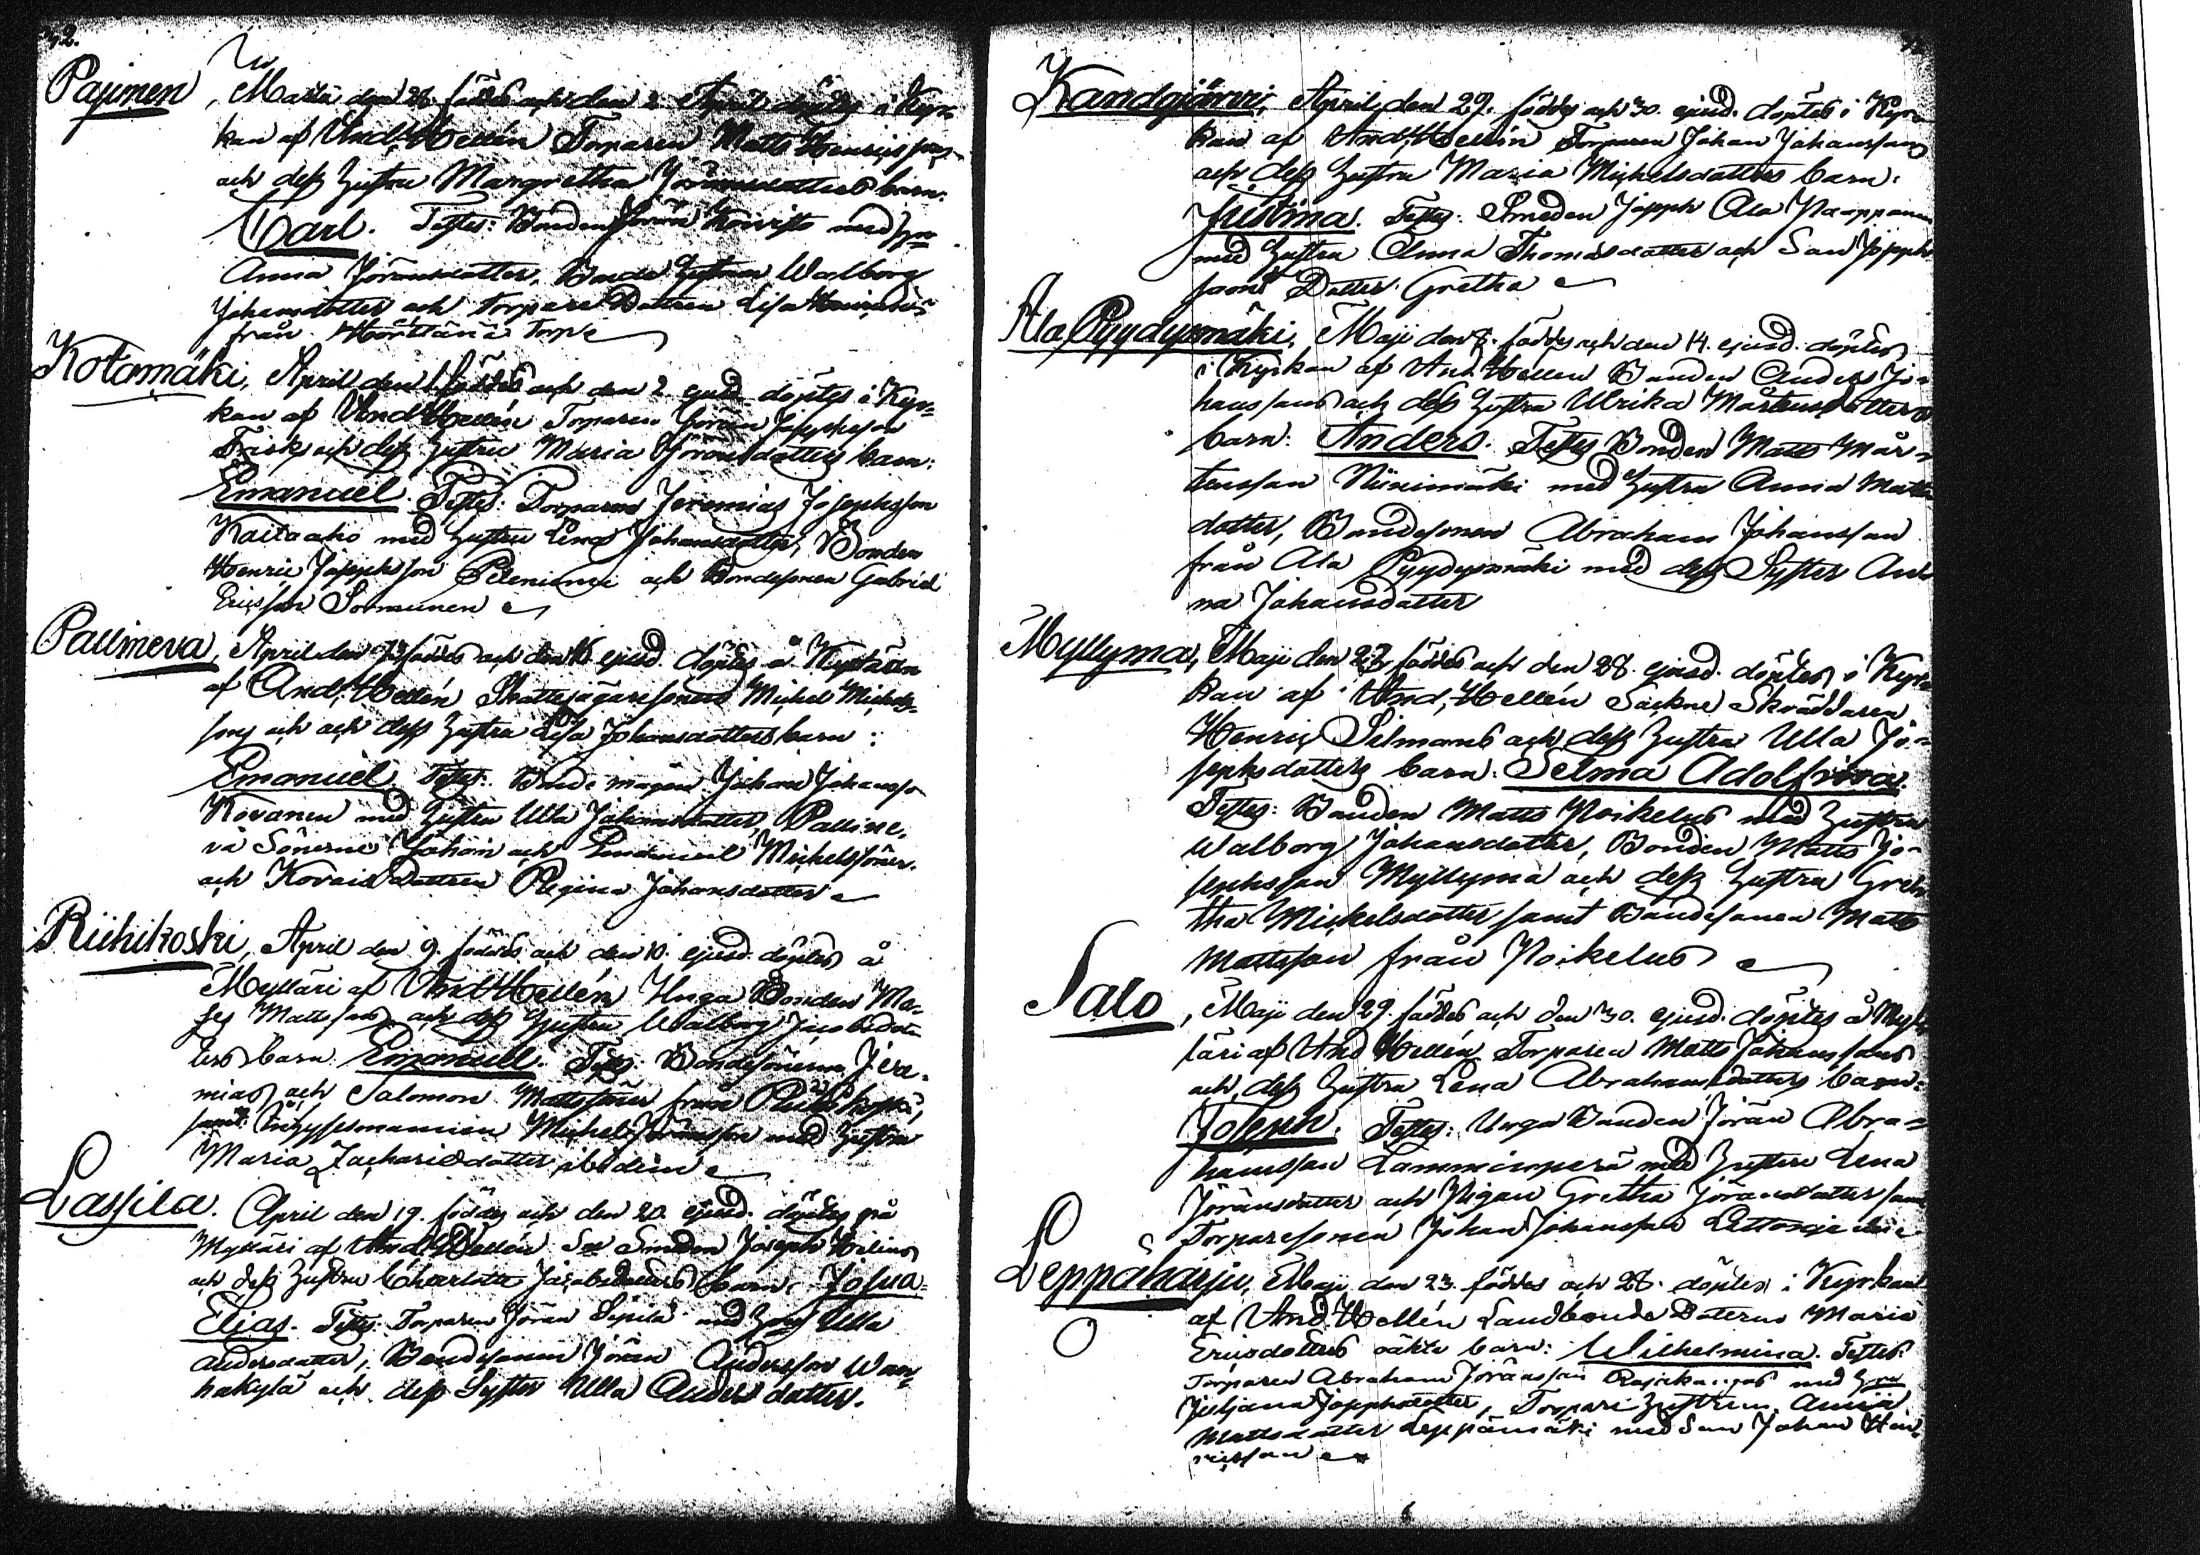 42.
Pajunen, Martii den 28 föddes och den 2 April döptes i Kyr=
kan af And. Hellén Torparen Matts Henrics sons
och dess hustru Margretha Jöransdotters barn:
Carl. Testes: Bonden Jöran Koivisto med hu
Anna Jöransdotter, Bonde hustrun Walborg
Johansdotter och torpare Dottren Lisa
från torp
Kotamäki, April den 1 föddes och den 2 ejusd. döptes i Kyr=
kan af And Hellén Torparen Jöran Josephsson
Frisks och dess hustru Maria Jöransdotters barn:
Emanuel. Testes: Torparen Jeremias Josephsson
Kaitaaho med hustru Lena Johansdotter, Bonden
Henric Josephson och Bondesonen Gabriel
Ericsson Sormunen
Pallineva, April den föddes och den 16 ejusd. döptes å Kyttälä
af And. Hellén Michel Michels=
sons och och dess hustru Lisa Johansdotters barn:
Emanuel. Testes: Bonde mågen Johan Johansso
Kovanen med hustru Ulla Johansdotter, Palline=
va Sönerne Johan och Emanuel Michelssöner
och Dottren Regina Johansdotter
Riihikoski, April den 9. föddes och den 10. ejusd. döptes å
Mylläri af And Hellén Unga Bonden Mo=
ses Mattssons och dess hustru Walborg Jacobsdot=
ters barn Emanuel. Testes: Bondesönerne Jere=
mias och Salomon Mattssöner från Riihikoski,
samt Inhysesmannen Michel Jöransson med hustru
Maria Zachariedotter ibidem
Lassila. April den 19. föddes och den 20. ejusd. döptes på
Mylläri af And Hellén Smeden Joseph Helins
och dess hustru Charlotta Jacobsdotters barn: Josua
Elias. Testes: Torparen Jöran Sipilä med hu Ulla
Andersdotter, Bondesonen Jöran Andersson Wan=
hakylä och dess Syster Ulla Anders dotter.
Kandgjärvi, April den 29. föddes och 30. ejusd. döptes i Kyr=
kan af And. Hellén Torparen Johan Johanssons
och dess hustru Maria Michelsdotters barn:
Justina. Testes: Smeden Joseph Ala Naappanen
med hustru Anna Thomasdotter och Son Joseph
sons Dotter Gretha
Ala Pyydysmäki, Maji den 8. föddes och den 14. ejusd. döptes
i Kyrkan af And. Hellén Bonden Anders Jo=
hanssons och dess hustru Ulrika Mårtensdotters
barn: Anders. Testes Bonden Matts Mår=
tensson Niinimäki med hustru Anna Matts
dotter, Bondesonen Abraham Johansson
från Ala Pyydysmäki med dess Syster An=
na Johansdotter
Myllymä, Maji den 27 föddes och den 28. ejusd. döptes i Kyr=
kan af And. Hellén Sockne Skräddaren
Henric Silmans och dess hustru Ulla Jo=
sephsdotters barn: Selma Adolfiina.
Testes: Bonden Matts Poikelus med hustru
Walborg Johansdotter, Bonden Matts Jo=
sephsson Myllymä och dess hustru Gre=
tha Michelsdotter samt Bondesonen Matts
Mattsson från Poikelus
Salo, Maji den 29. föddes och den 30. ejusd. döptes å Myl
läri af And Hellén Torparen Matts Johanssons
och dess hustru Lena Abrahamsdotters barn:
Joseph. Testes: Unga Bonden Jöran Abra=
hamsson Lamminperä med hustru Lena
Jöransdotter och Pigan Gretha Jöransdotter samt
Torparesonen Johan Johansson
Leppäharju, Maji den 23. föddes och 28. döptes i Kyrkan
af And. Hellén Landbonde Doterns Maria
Ericsdotters oäkta barn: Wilhelmina. Testes:
Torparen Abraham Jöransson Rajakangas med hu
Juljana Josephsdotter, Torpare hustrun Anna
Mattsdotter Leppämäki med Son Johan Hen=
ricsson